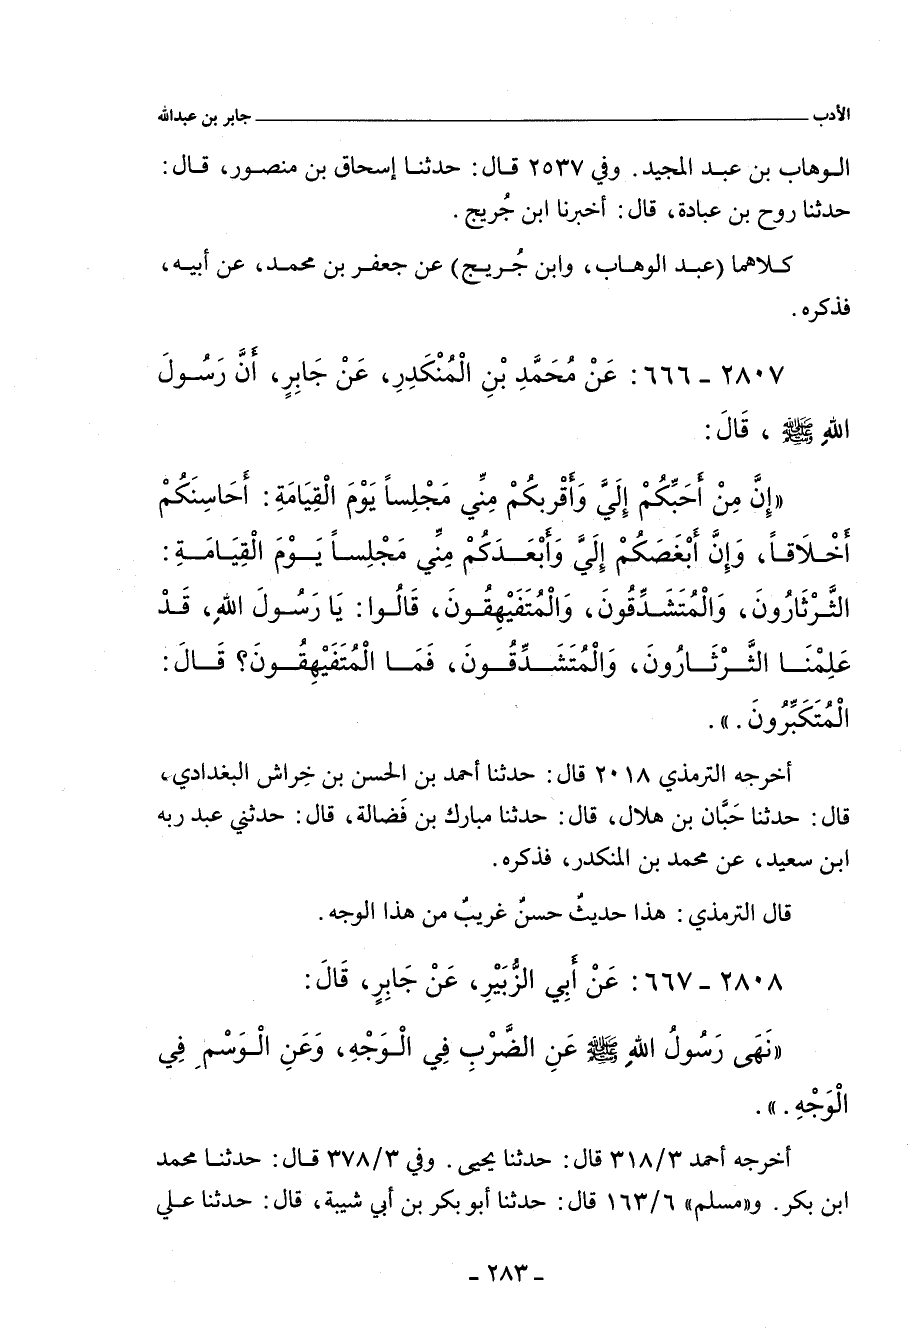 الأدب ــــــــــــ جابر بن عبدالله
الوهاب بن عبد المجيد. وفي ٢٥٣٧ قال: حدثنا إسحاق بن منصور، قال:
حدثنا روح بن عبادة، قال: أخبرنا ابن جُريج.
كلاهما (عبد الوهاب، وابن جُريج) عن جعفر بن محمد، عن أبيه،
فذكره.
٢٨٠٧ ـ ٦٦٦: عَنْ مُحَمَّدِ بْنِ الْمُنْكَدِرِ، عَنْ جَابِرٍ، أَنَّ رَسُولَ
اللهِ ﷺ، قَالَ:
«إِنَّ مِنْ أَحَبِّكُمْ إِلَيَّ وَأَقْرَبِكُمْ مِنِّي مَجْلِساً يَوْمَ الْقِيَامَةِ: أَحَاسِنَكُمْ
أَخْلَاقاً، وَإِنَّ أَبْغَضَكُمْ إِلَيَّ وَأَبْعَدَكُمْ مِنِّي مَجْلِساً يَوْمَ الْقِيَامَةِ:
الثَّرْثَارُونَ، وَالْمُتَشَدِّقُونَ، وَالْمُتَفَيْهِقُونَ، قَالُوا: يَا رَسُولَ اللهِ، قَدْ
عَلِمْنَا الثَّرْثَارُونَ، وَالْمُتَشَدِّقُونَ، فَمَا الْمُتَفَيْهِقُونَ؟ قَالَ:
الْمُتَكَبِّرُونَ.».
أخرجه الترمذي ٢٠١٨ قال: حدثنا أحمد بن الحسن بن خِراش البغدادي،
قال: حدثنا حَبَّان بن هلال، قال: حدثنا مبارك بن فَضالة، قال: حدثني عبد ربه
ابن سعيد، عن محمد بن المنكدر، فذكره.
قال الترمذي: هذا حديثٌ حسنٌ غريبٌ من هذا الوجه.
٢٨٠٨ ـ ٦٦٧: عَنْ أَبِي الزُّبَيْرِ، عَنْ جَابِرٍ، قَالَ:
«نَهَى رَسُولُ اللهِ ﷺ عَنِ الضَّرْبِ فِي الْوَجْهِ، وَعَنِ الْوَسْمِ فِي
الْوَجْهِ.».
أخرجه أحمد ٣/٣١٨ قال: حدثنا يحيى. وفي ٣/٣٧٨ قال: حدثنا محمد
ابن بكر. و«مسلم» ٦/١٦٣ قال: حدثنا أبو بكر بن أبي شيبة، قال: حدثنا علي
ـ ٢٨٣ ـ